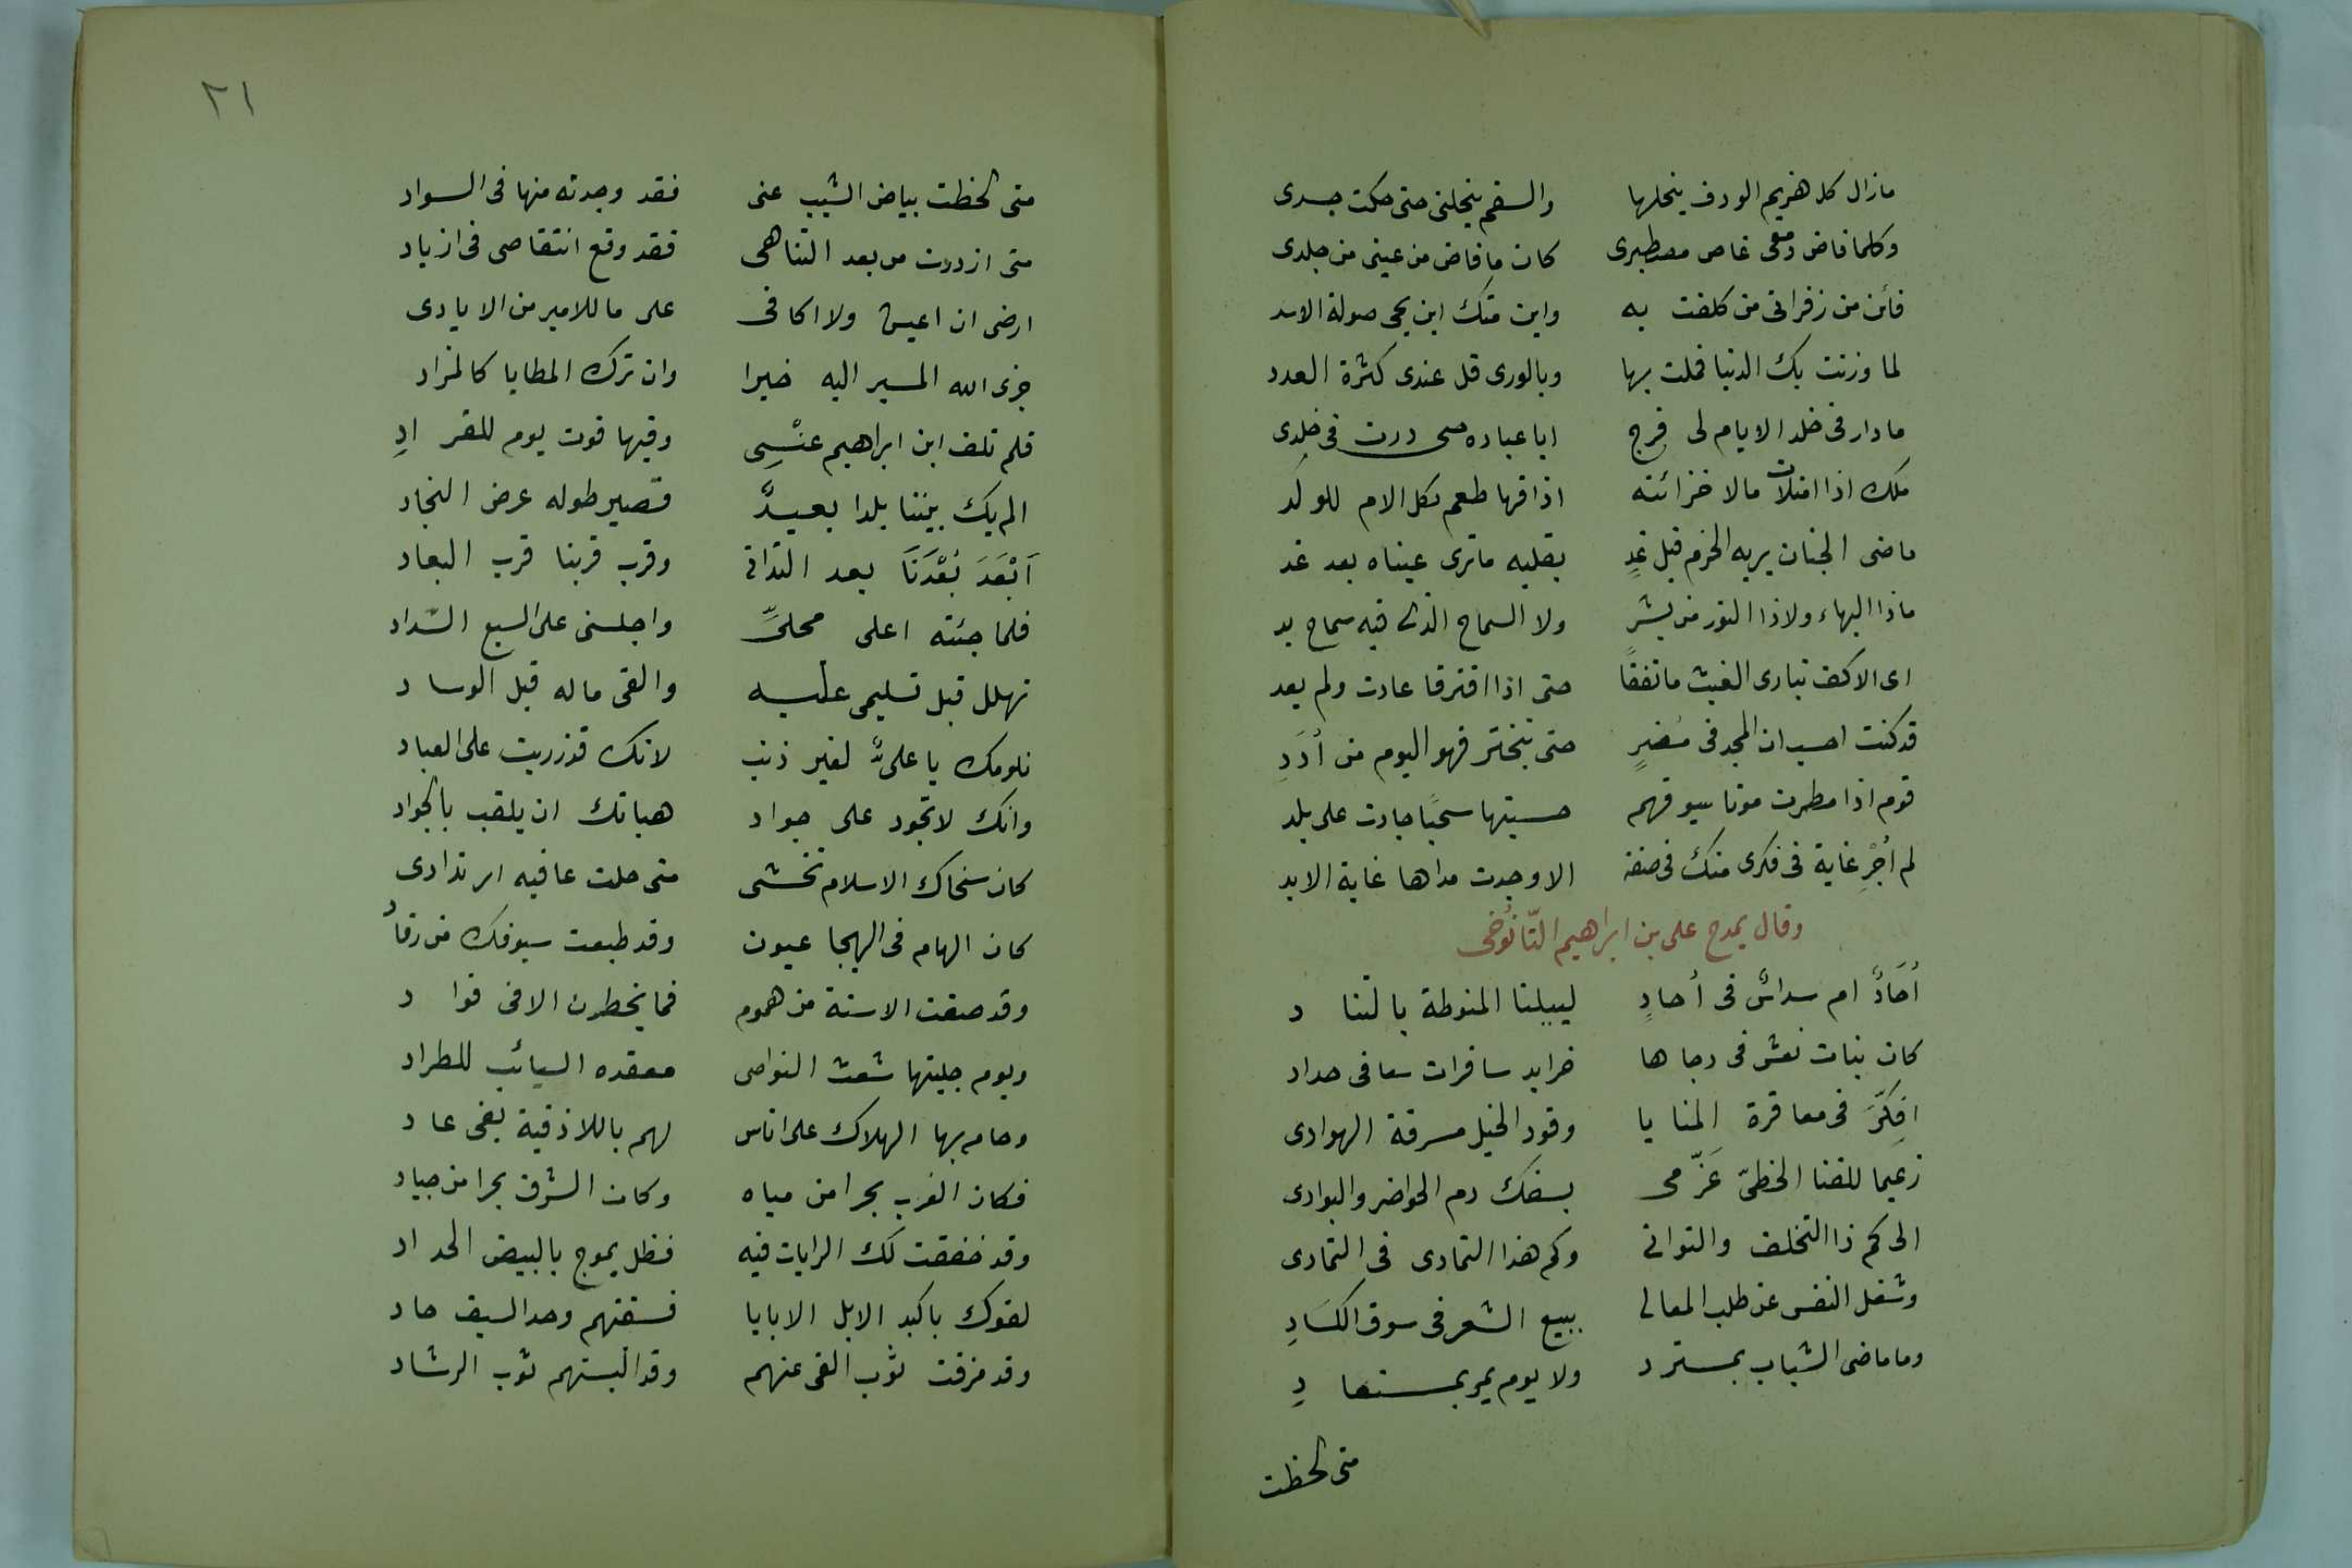 مازال كل هزيم الودق ينحلها والسقم ينحلنى حتى حكت جسدى
وكلما فاض دمعى غاص مصطبرى كان ما فاض من عينى من جلدى
فأين من زفراتى من كلفت به واين منك ابن يحيى صولة الاسد
لما وزنت بك الدنيا فملت بها وبالورى قل عندى كثرة العدد
مادار فى خلد الايام لى فرح ابا عباده حتى درت فى خلدى
ملك اذا امتلات مالا خزائنه اذاقها طعم ثكل الام للولد
ماضى الجنان يريه الحزم قبل غدٍ بقلبه ماترى عيناه بعد غد
ماذا البهاء ولاذا النور من بشر ولا السماح الذى فيه سماح يد
اى الاكف تبارى الغيث ما تفقا حتى اذا افترقا عادت ولم يعد
قد كنت احسب ان المجد فى مُضرٍ حتى تبختر فهو اليوم من أُدَدِ
قوم اذا مطرت موتا سيوفهم حسبتها سحبًا جادت على بلد
لم أُجْرِ غاية فى فكرى منك فى صفة الا وجدت مداها غاية الابد
وقال يمدح على بن ابراهيم التّانُوخى
أُحَادٌ ام سداسٌ فى أُحادٍ لييلتنا المنوطة بالتنا د
كان بنات نعش فى دجا ها خرايد سافرات فى حداد
افكّرَ فى معاقرة المنا يا وقود الخيل مسرقة الهوادى
زعيما للقنا الخطىّ عَزْمى بسفك دم الحواضر والبوادى
الى كم ذا التخلف والتوانى وكم هذا التمادى فى التمادى
وشغل النفس عن طلب المعالى ببيع الشعر فى سوق الكسَادِ
وما ماضى الشباب بمسترد ولا يوم يمر بمستعا دِ
متى لحظت
٢١
متى لحظت بياض الشيب عنى فقد وجدته منها فى السواد
متى ازددت من بعد التناهى فقد وقع انتقاصى فى ازدياد
ارضى ان اعيش ولا اكافى على ما للامير من الايادى
جزى الله المسير اليه خيرا وان ترك المطايا كالمزاد
فلم تلف ابن ابراهيم عنْسِى وفيها قوت يوم للقر ادِ
الم يك بيننا بلدا بعيدٌ فصير طوله عرض النجاد
اَبْعَدَ بُعْدَنَا بعد التدانى وقرب قربنا قرب البعاد
فلما جئته اعلى محلىِّ واجلسنى على السبع الشداد
تهلل قبل تسليمى عليه والقى ماله قبل الوسا د
نلومك يا علىٌّ لغير ذنب لانك قد زريت على العباد
وانك لا تجود على جواد هباتك ان يلقب بالجواد
كان سخاك الاسلام تخشى متى حلت عاقبه ارتدادى
كان الهام فى الهيجا عيون وقد طبعت سيوفك من رقاد
وقد صغت الاسنة من هموم فما يخطرن الا فى فوا د
ويوم جلبتها شعث النواصى معقده السبائب للطراد
وحام بها الهلاك على اناس لهم باللاذقية بغى عا د
فكان الغرب بحرا من مياه وكان الشرق بحرا من جياد
وقد خفقت لك الرايات فيه فظل يموج بالبيض الحد اد
لقوك باكبد الابل الابايا فسقتهم وحد السيف حا د
وقد مزقت ثوب الغى عنهم وقد البستهم ثوب الرشاد